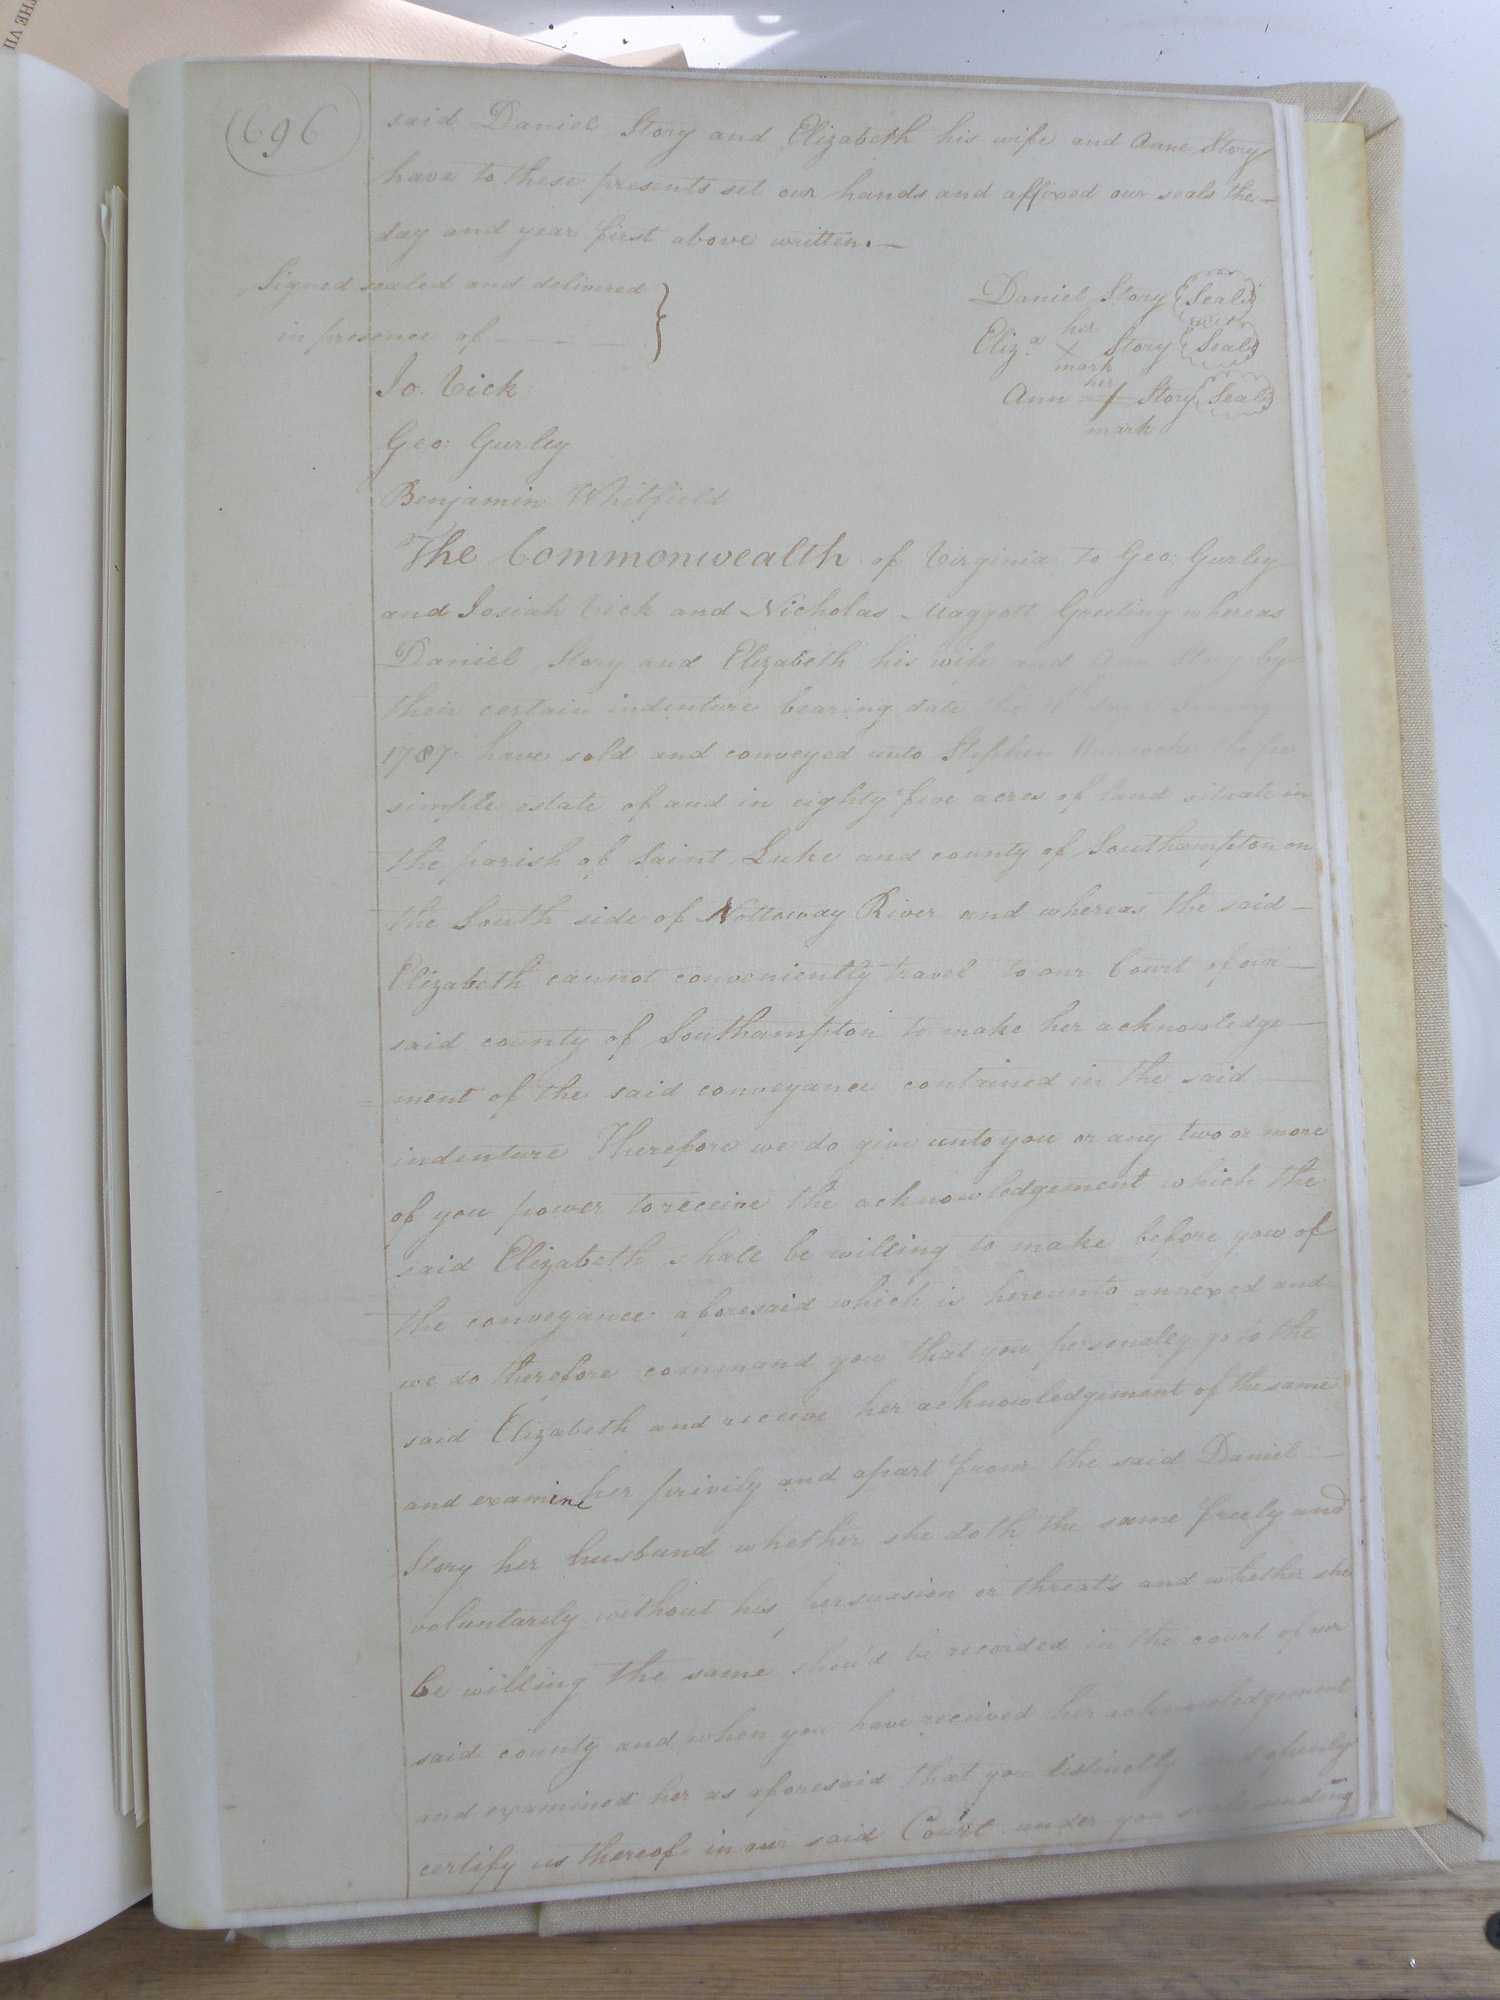 THE VII
(696)
said Daniel Story and Elizabeth his wife and Anne Story
have to these presents set our hands and affixed our seals the —
day and year first above written. —
Signed sealed and delivered }
in presence of — — — —
Daniel Story (Seal)
Eliz.a her X mark Story (Seal)
Ann her + mark Story (Seal)
Jo. Vick
Geo: Gurley
Benjamin Whitfield
The Commonwealth of Virginia to Geo: Gurley
and Josiah Vick and Nicholas Maggott Greeting whereas
Daniel Story and Elizabeth his wife and Ann Story by
their certain indenture bearing date the day January
1787 have sold and conveyed unto Stephen the fee
simple estate of and in eighty five acres of land situate in
the parish of Saint Luke and county of Southampton on
the South side of Nottoway River and whereas the said —
Elizabeth cannot conveniently travel to our Court of our —
said county of Southampton to make her acknowledge —
ment of the said conveyance contained in the said —
indenture Therefore we do give unto you or any two or more
of you power to receive the acknowledgement which the
said Elizabeth shall be willing to make before you of
the conveyance aforesaid which is hereunto annexed and —
we do therefore command you that you personaley go to the
said Elizabeth and receive her acknowledgement of the same
and examine her privily and apart from the said Daniel —
Story her husband whether she doth the same freely and
voluntarily without his persuasion or threats and whether she
be willing the same shou'd be recorded in the court of our
said county and when you have received her acknowledgement
and examined her as aforesaid that you distinctly and openly
certify us thereof in our said Court under you seals sending